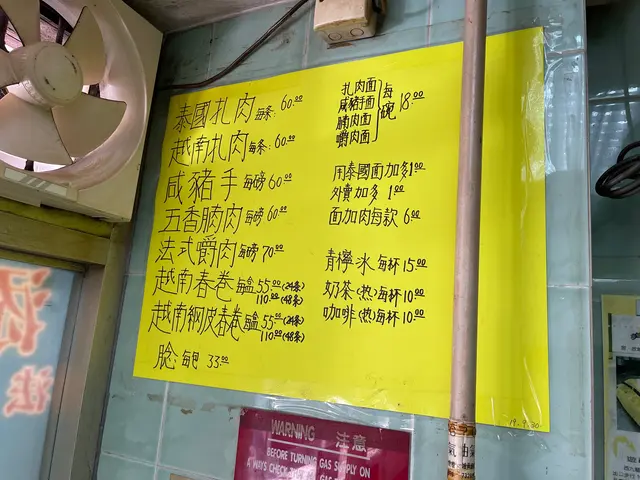 泰國扎肉 每条: 60.00
越南扎肉 每条: 60.00
咸豬手 每磅 60.00
五香腩肉 每磅 60.00
法式嚼肉 每磅 70.00
越南春卷 每盒 55.00 (24条)
110.00 (48条)
越南網皮春卷 每盒 55.00 (24条)
110.00 (48条)
每包 33.00
扎肉面
咸豬手面
腩肉面
嚼肉面
每碗 18.00
用泰國面加多1.00
外賣加多 1.00
面加肉每款 6.00
青檸冰 每杯 15.00
奶茶(热)每杯 10.00
咖啡(热)每杯 10.00
WARNING 注意
BEFORE TURNING GAS SUPPLY ON
法